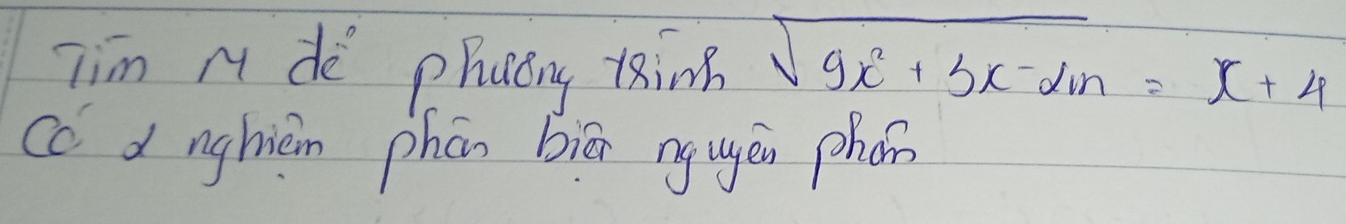 Tìm M để phương trình √9x² + 3x - 2m = x + 4
Có 2 nghiệm phân biệt nguyên